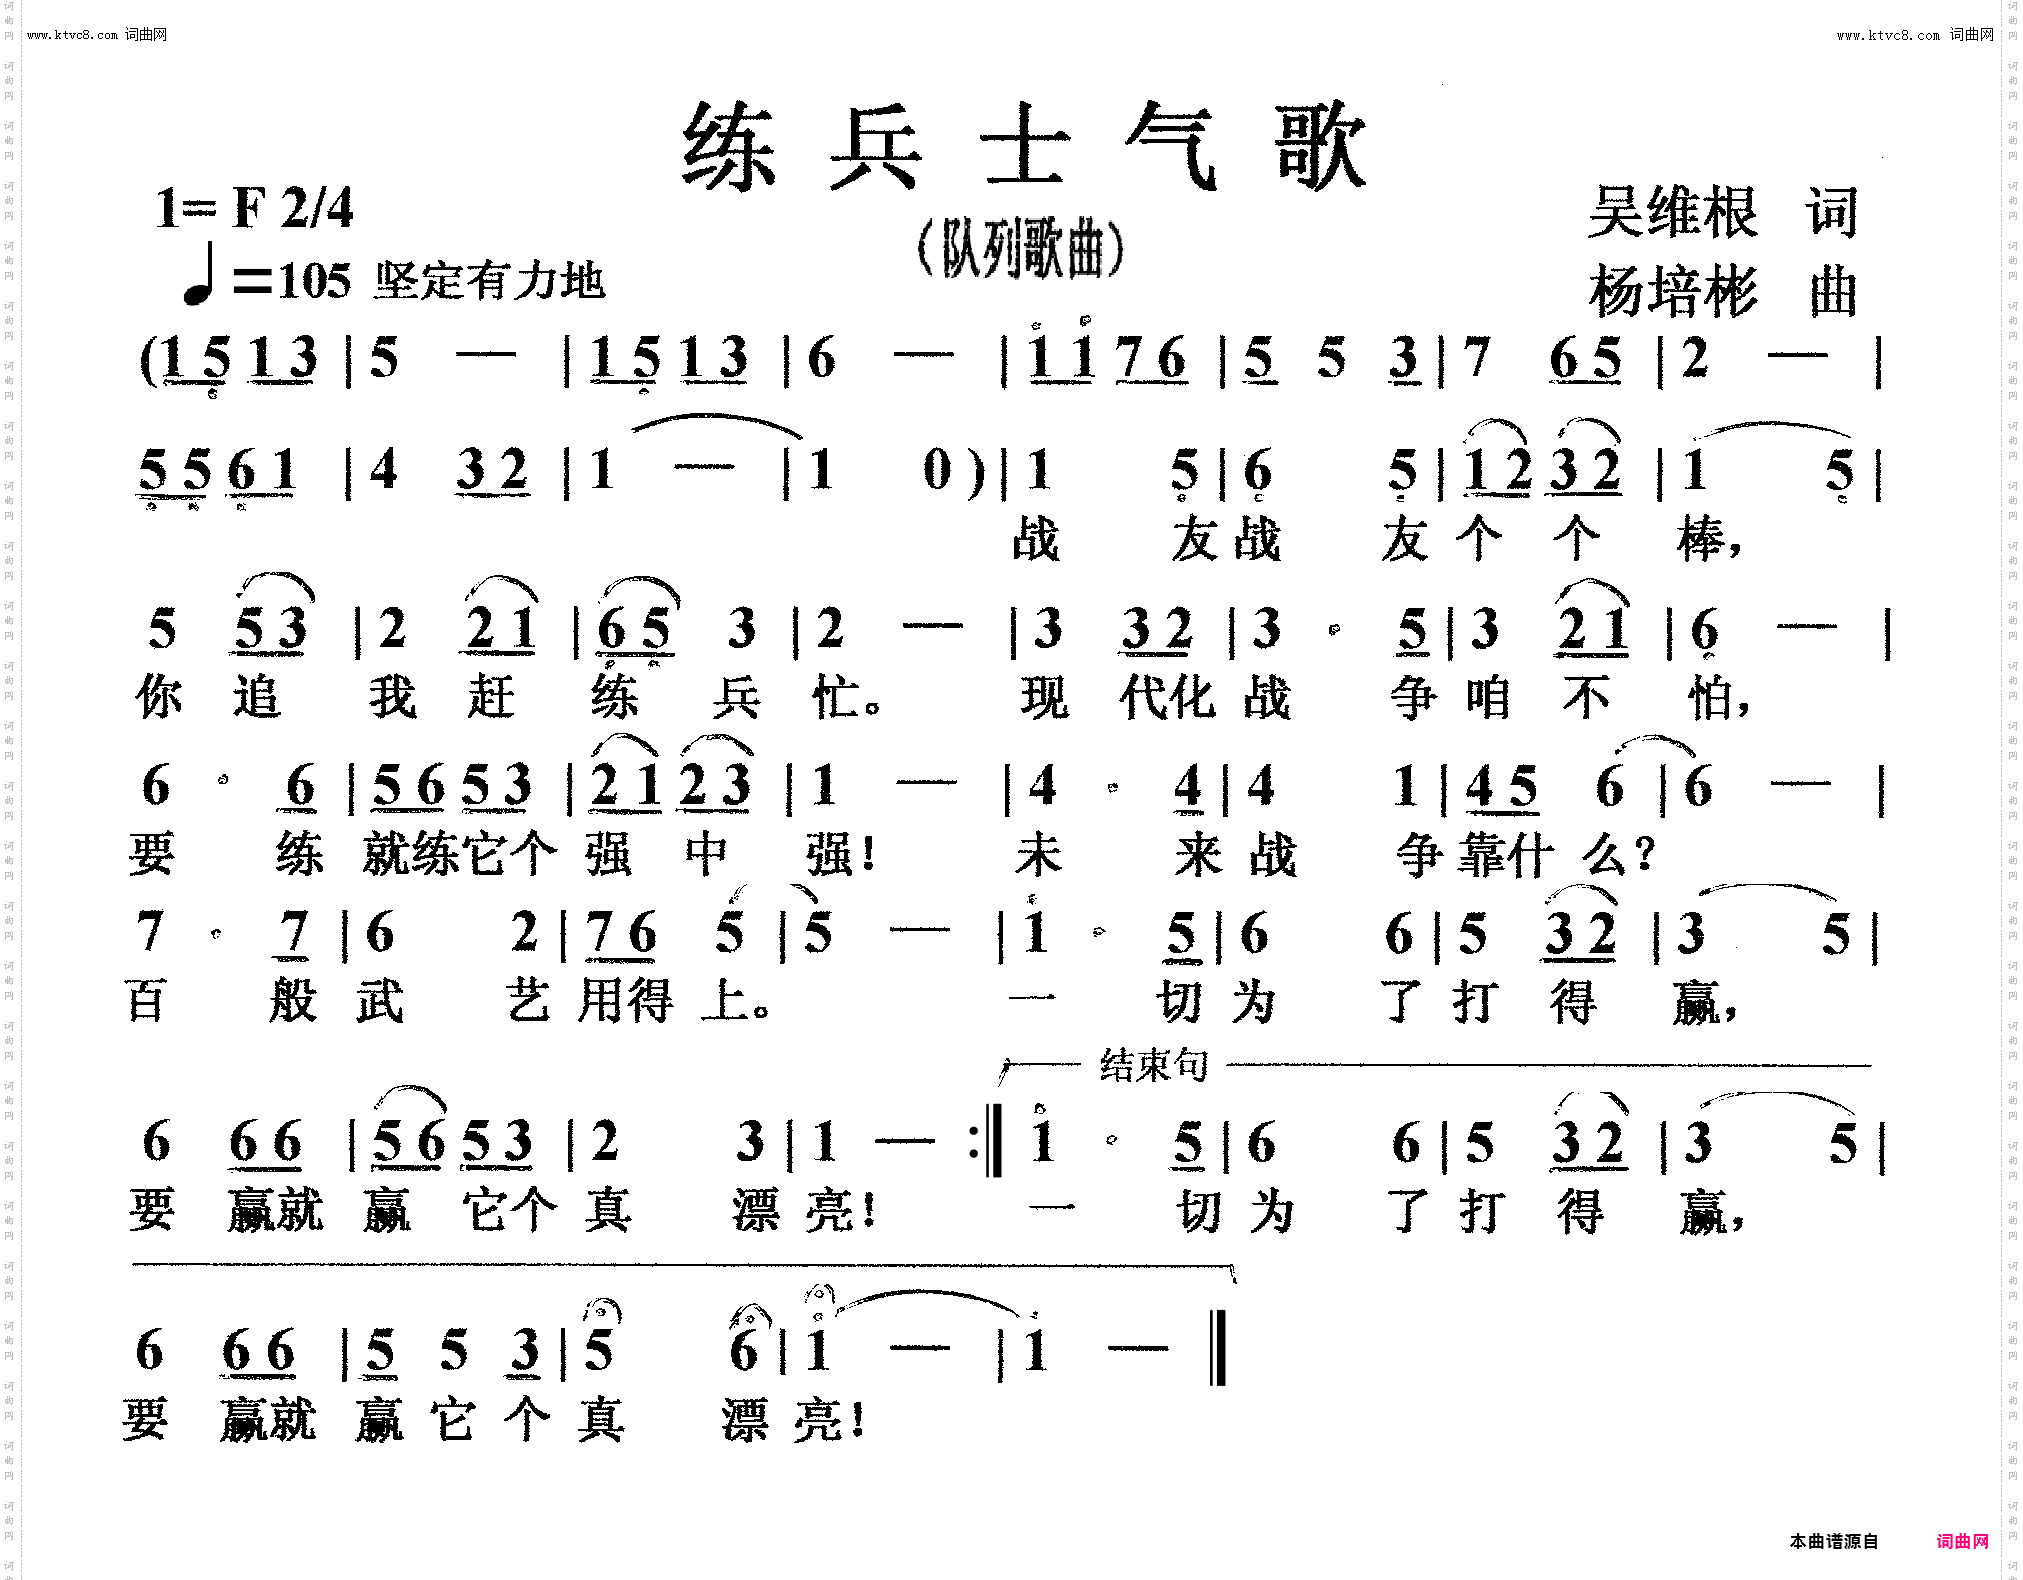 www.ktvc8.com 词曲网 www.ktvc8.com 词曲网
练兵士气歌
1= F 2/4
(队列歌曲)
吴维根 词
♩=105 坚定有力地
杨培彬 曲
(1 5 1 3 | 5 — | 1 5 1 3 | 6 — | 1 1 7 6 | 5 5 3 | 7 6 5 | 2 — |
5 5 6 1 | 4 3 2 | 1 — | 1 0 ) | 1 5 | 6 5 | 1 2 3 2 | 1 5 |
战 友 战 友 个 个 棒,
5 5 3 | 2 2 1 | 6 5 3 | 2 — | 3 3 2 | 3 · 5 | 3 2 1 | 6 — |
你 追 我 赶 练 兵 忙。 现 代化 战 争 咱 不 怕,
6 · 6 | 5 6 5 3 | 2 1 2 3 | 1 — | 4 · 4 | 4 1 | 4 5 6 | 6 — |
要 练 就练它个 强 中 强! 未 来 战 争 靠什 么?
7 · 7 | 6 2 | 7 6 5 | 5 — | 1 · 5 | 6 6 | 5 3 2 | 3 5 |
百 般 武 艺 用得 上。 一 切 为 了 打 得 赢,
结束句
6 6 6 | 5 6 5 3 | 2 3 | 1 — :‖ 1 · 5 | 6 6 | 5 3 2 | 3 5 |
要 赢就 赢 它个 真 漂 亮! 一 切 为 了 打 得 赢,
6 6 6 | 5 5 3 | 5 6 | 1 — | 1 — ‖
要 赢就 赢 它 个 真 漂 亮!
本曲谱源自 词曲网